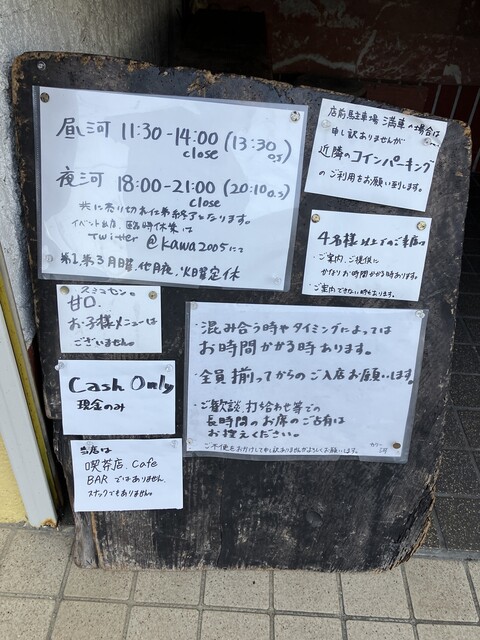 昼河 11:30-14:00 (13:30 os)
close
夜河 18:00-21:00 (20:10 o.s)
close
共に売り切れ次第終了となります。
イベント出店、臨時休業は
Twitter @kawa2005にて
第1、第3月曜、他月夜、火曜定休
店前駐車場 満車の場合は
申し訳ありませんが
近隣のコインパーキング
のご利用をお願い致します。
4名様以上でのご来店は
・ご案内、ご提供に
かなりお時間かかる時あります。
・ご案内できない時もあります。
スミマセン。
甘口、
お子様メニューは
ございません。
Cash Only
現金のみ
当店は
喫茶店、Cafe
BARではありません。
スナックでもありません。
・混み合う時やタイミングによっては
お時間かかる時あります。
・全員揃ってからのご入店お願いします。
・ご歓談、打ち合わせ等での
長時間のお席のご占有は
お控えください。
ご不便をおかけして申し訳ありませんがよろしくお願いします。
カリー
河